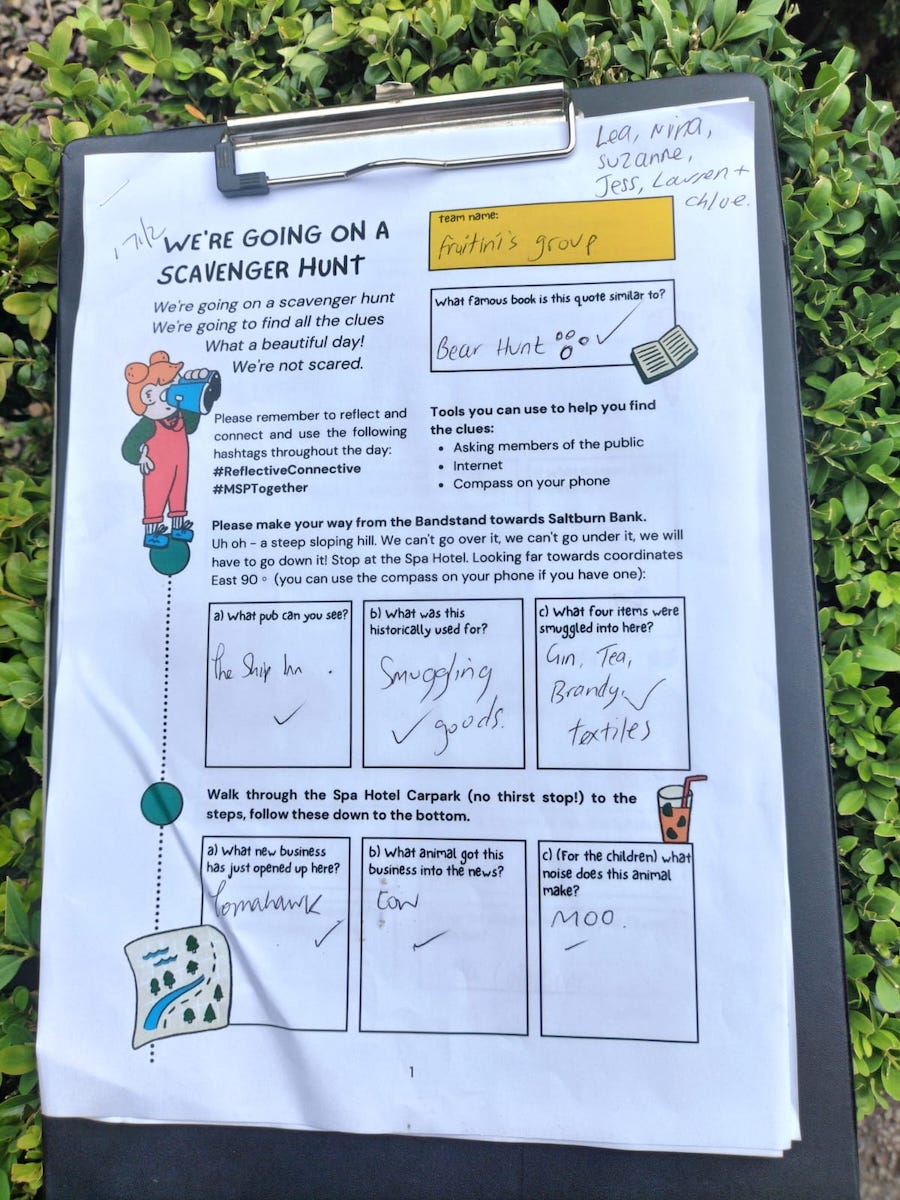 Lea, Nina,
Suzanne,
Jess, Lauren +
chloe.
team name:
fruitini's group
WE'RE GOING ON A
SCAVENGER HUNT
We're going on a scavenger hunt
We're going to find all the clues
What a beautiful day!
We're not scared.
What famous book is this quote similar to?
Bear Hunt
Please remember to reflect and
connect and use the following
hashtags throughout the day:
#ReflectiveConnective
#MSPTogether
Tools you can use to help you find
the clues:
• Asking members of the public
• Internet
• Compass on your phone
Please make your way from the Bandstand towards Saltburn Bank.
Uh oh - a steep sloping hill. We can't go over it, we can't go under it, we will
have to go down it! Stop at the Spa Hotel. Looking far towards coordinates
East 90° (you can use the compass on your phone if you have one):
a) What pub can you see?
The Ship Inn.
b) What was this
historically used for?
Smuggling
goods.
c) What four items were
smuggled into here?
Gin, Tea,
Brandy,
textiles
Walk through the Spa Hotel Carpark (no thirst stop!) to the
steps, follow these down to the bottom.
a) What new business
has just opened up here?
Tomahawk
b) What animal got this
business into the news?
Cow
c) (For the children) what
noise does this animal
make?
MOO.
1